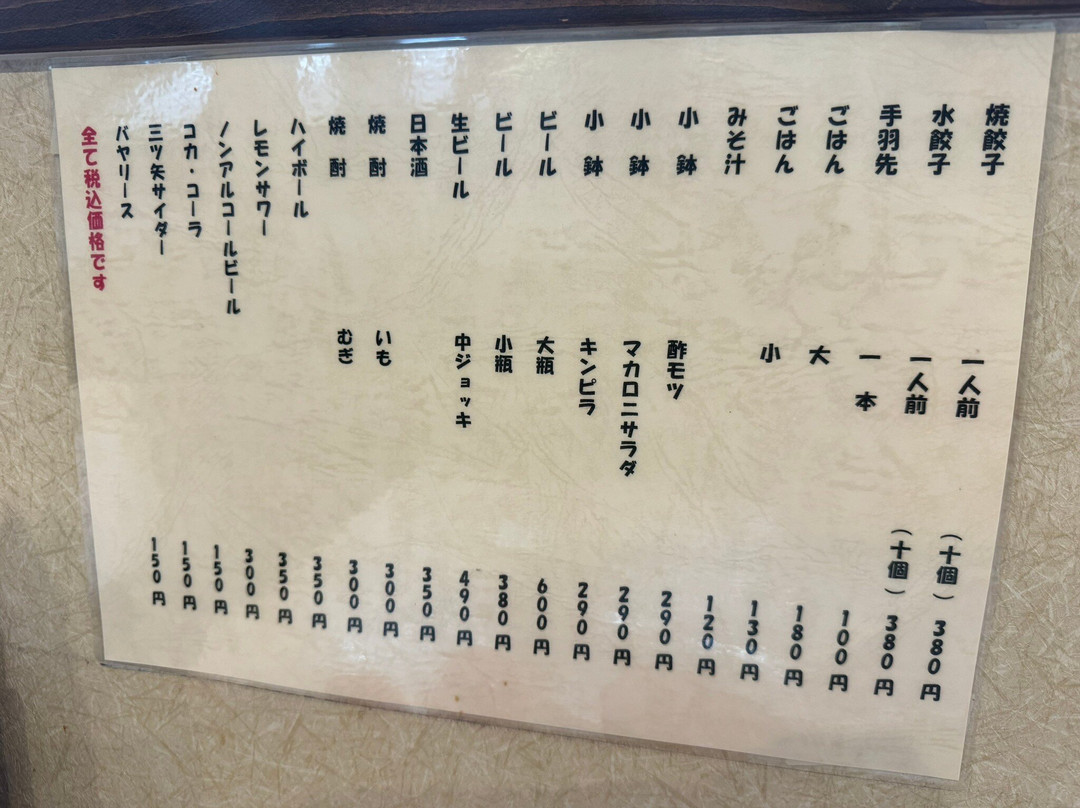 焼餃子 一人前 (十個) 380円
水餃子 一人前 (十個) 380円
手羽先 一本 100円
ごはん 大 180円
ごはん 小 130円
みそ汁 120円
小鉢 酢モツ 290円
小鉢 マカロニサラダ 290円
小鉢 キンピラ 290円
ビール 大瓶 600円
ビール 小瓶 380円
生ビール 中ジョッキ 490円
日本酒 350円
焼酎 いも 300円
焼酎 むぎ 300円
ハイボール 350円
レモンサワー 350円
ノンアルコールビール 300円
コカ・コーラ 150円
三ツ矢サイダー 150円
バヤリース 150円
全て税込価格です